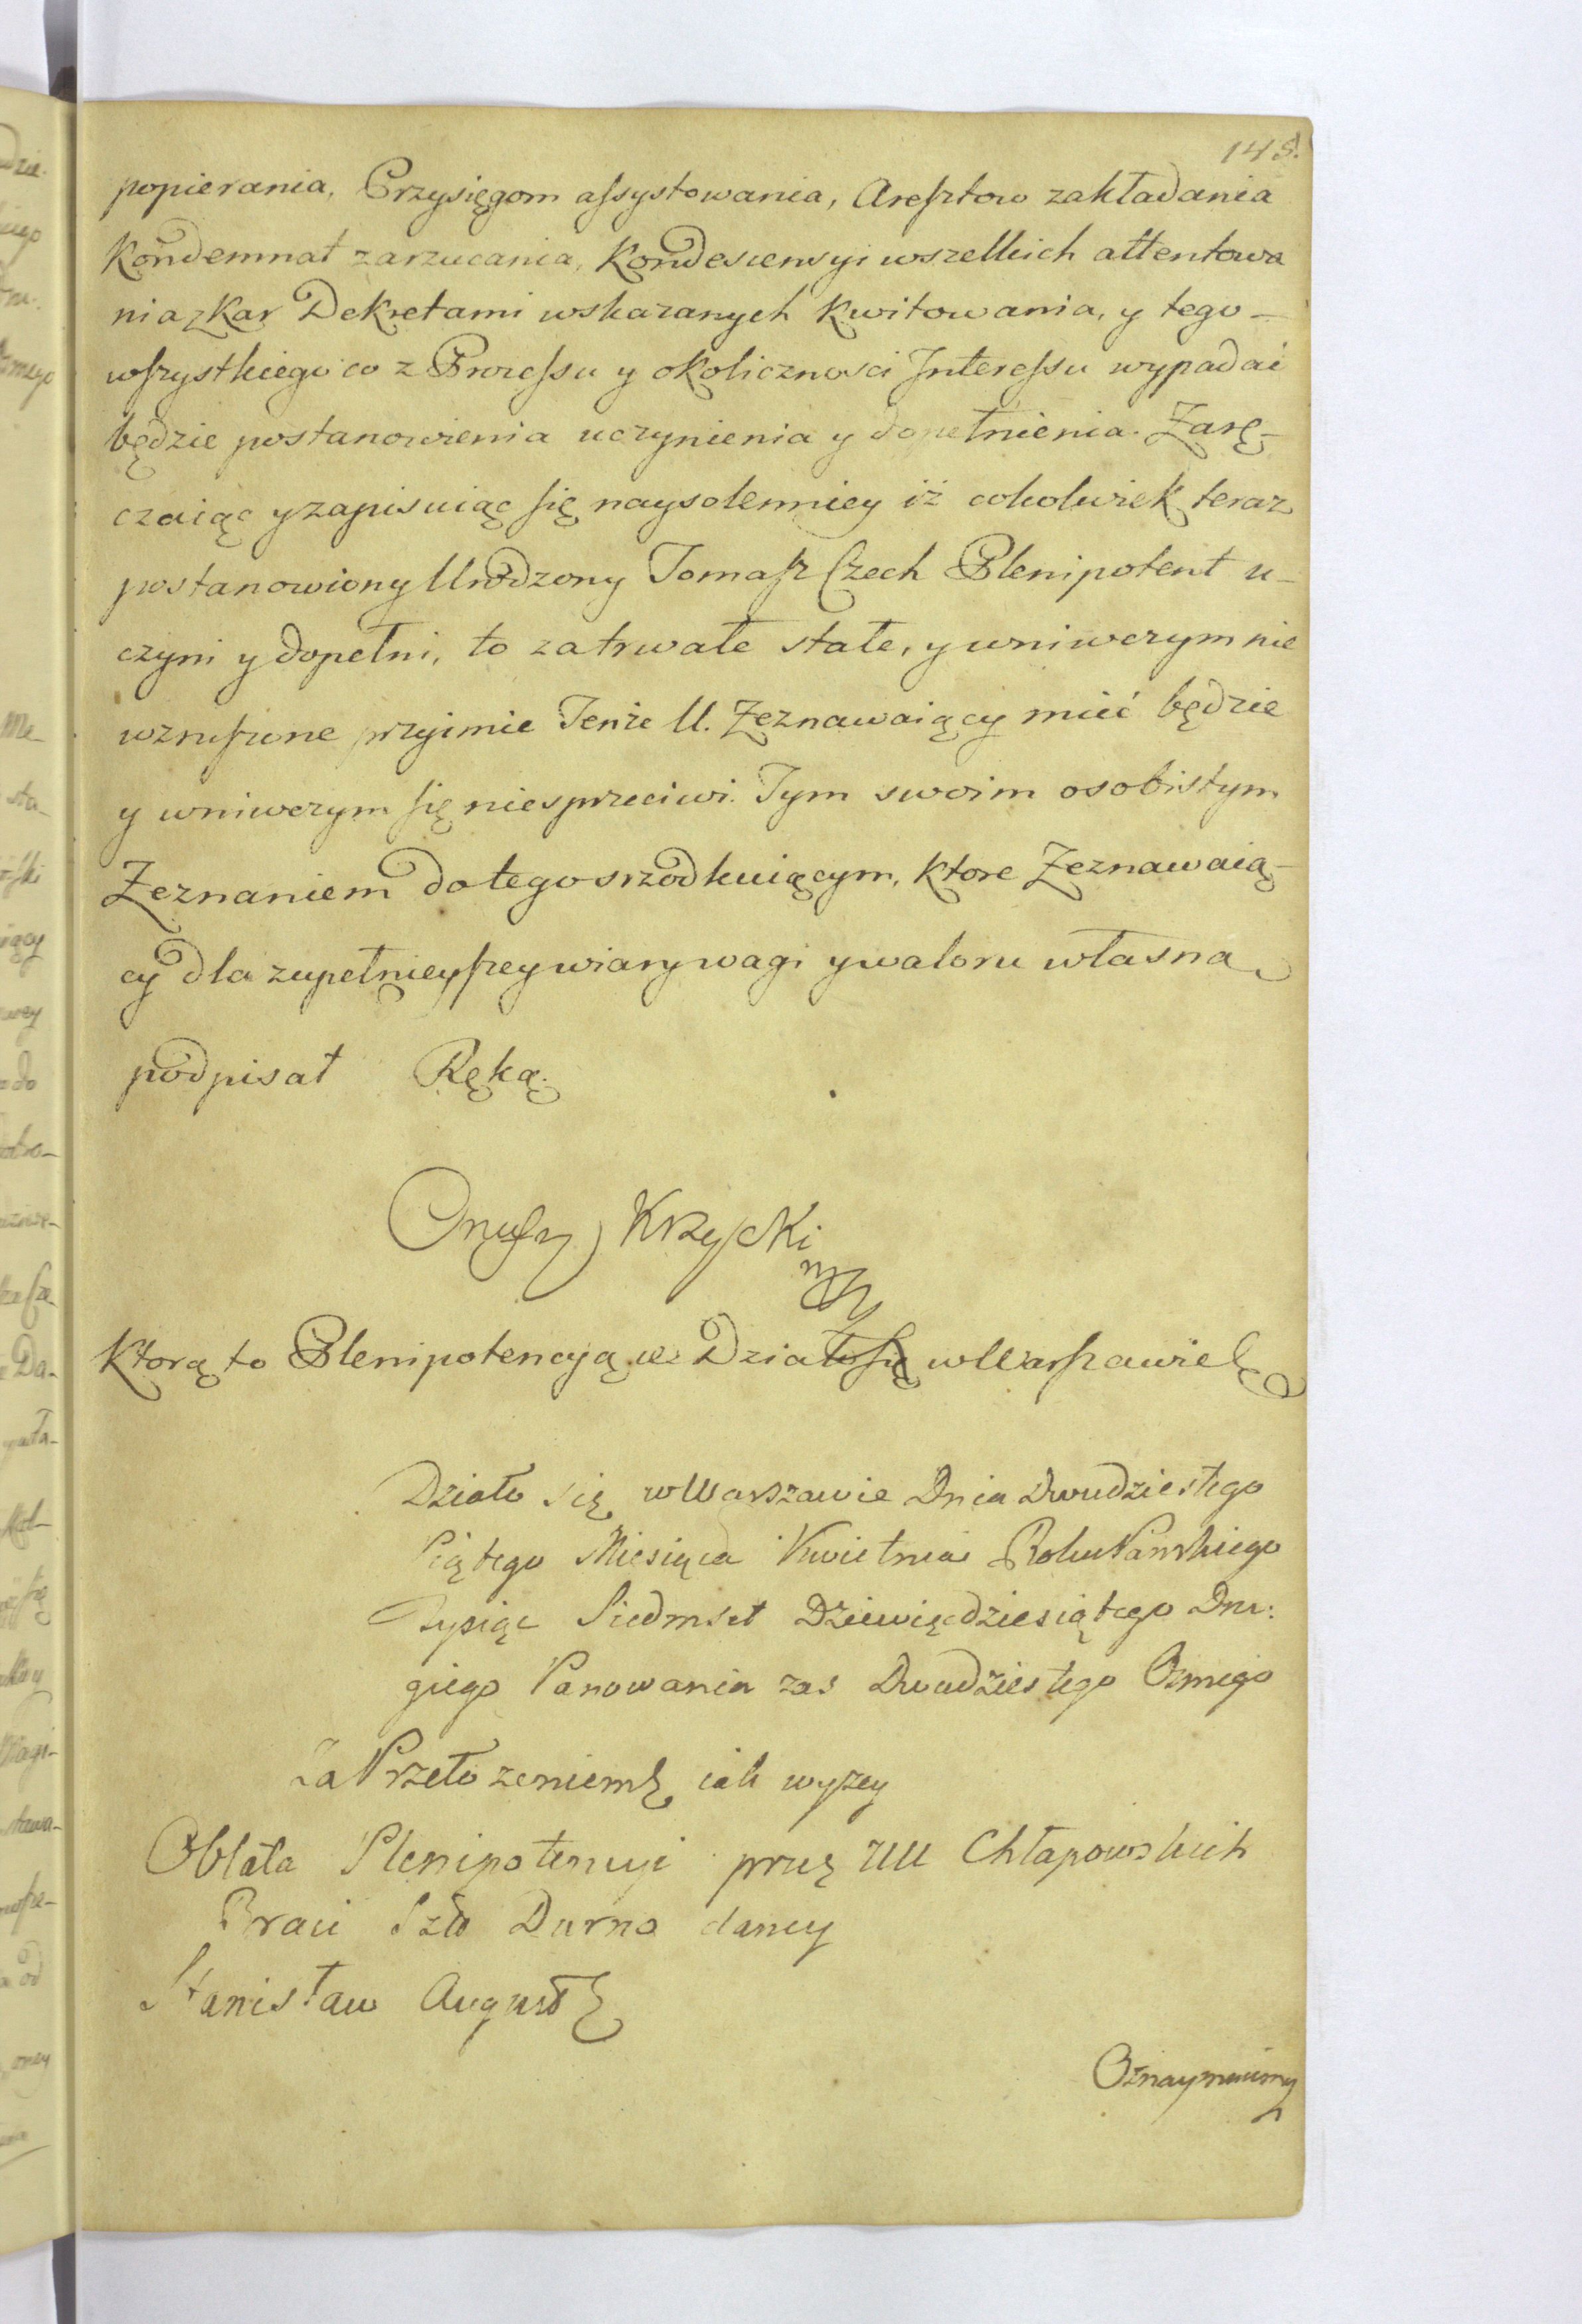 148.
popierania, Przysięgom assystowania, Aresztow zakładania
Kondemnat zarzucania, Kondescensyi wszelkich attentowa
nia z Kar Dekretami wskazanych kwitowania, y tego –
wszystkiego co z Processu y okolicznosci Interessu wypadać
będzie postanowienia uczynienia y dopełnienia. Zarę-
czaiąc y zapisuiąc się naysolenniey iż cokolwiek teraz
postanowiony Urodzony Tomasz Czech Plenipotent u-
czyni y dopełni, to za trwałe stałe, y wniwczym nie
wzruszone przyimie Tenże U. Zeznawaiący mieć będzie
y wniwczym się niesprzeciwi. Tym swoim osobistym
Zeznaniem do tego srzodkuiącym, ktore Zeznawaią-
cy dla zupełnieyszey wiary wagi y waloru własną
podpisał Ręką.
Onufry Krzycki
Ktorą to Plenipotencyą etc Działo się w Warszawie
Działo się w Warszawie Dnia Dwudziestego
Piątego Miesiąca Kwietnia Roku Pańskiego
Tysiąc Siedmset Dziewięcdziesiątego Dru:
giego Panowania zas Dwudziestego Osmego
Za Przełozeniem iak wyzey
Oblata Plenipotencyi przez UU Chłapowskich
Braci Szło Durno daney
Stanisław August
Oznaymuiemy